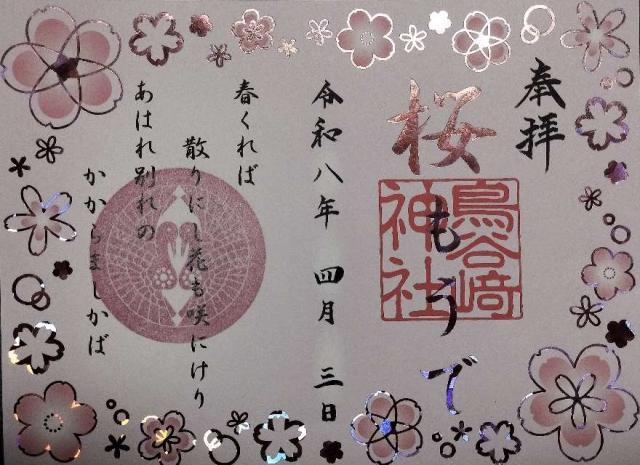 奉拝
桜もうで
鳥谷崎
神社
令和八年 四月 三日
春くれば
散りにし花も咲にけり
あはれ別れの
かからましかば